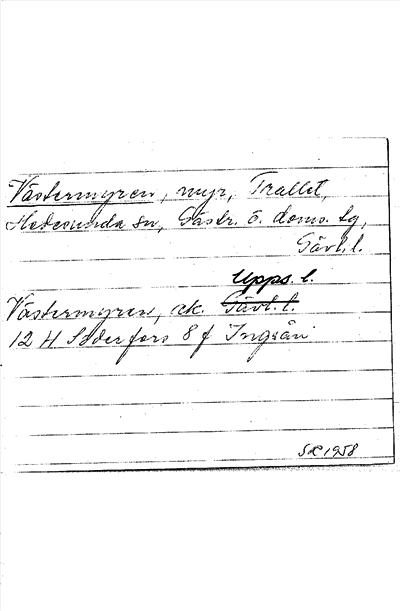 Västermyren, myr, Trallet,
Hedesunda sn, Gästr. ö. doms. tg,
Gävl. l.
Upps. l.
Västermyren, ek. Gävl. l.
12 H Söderfors 8 f Ingsån
SK 1958